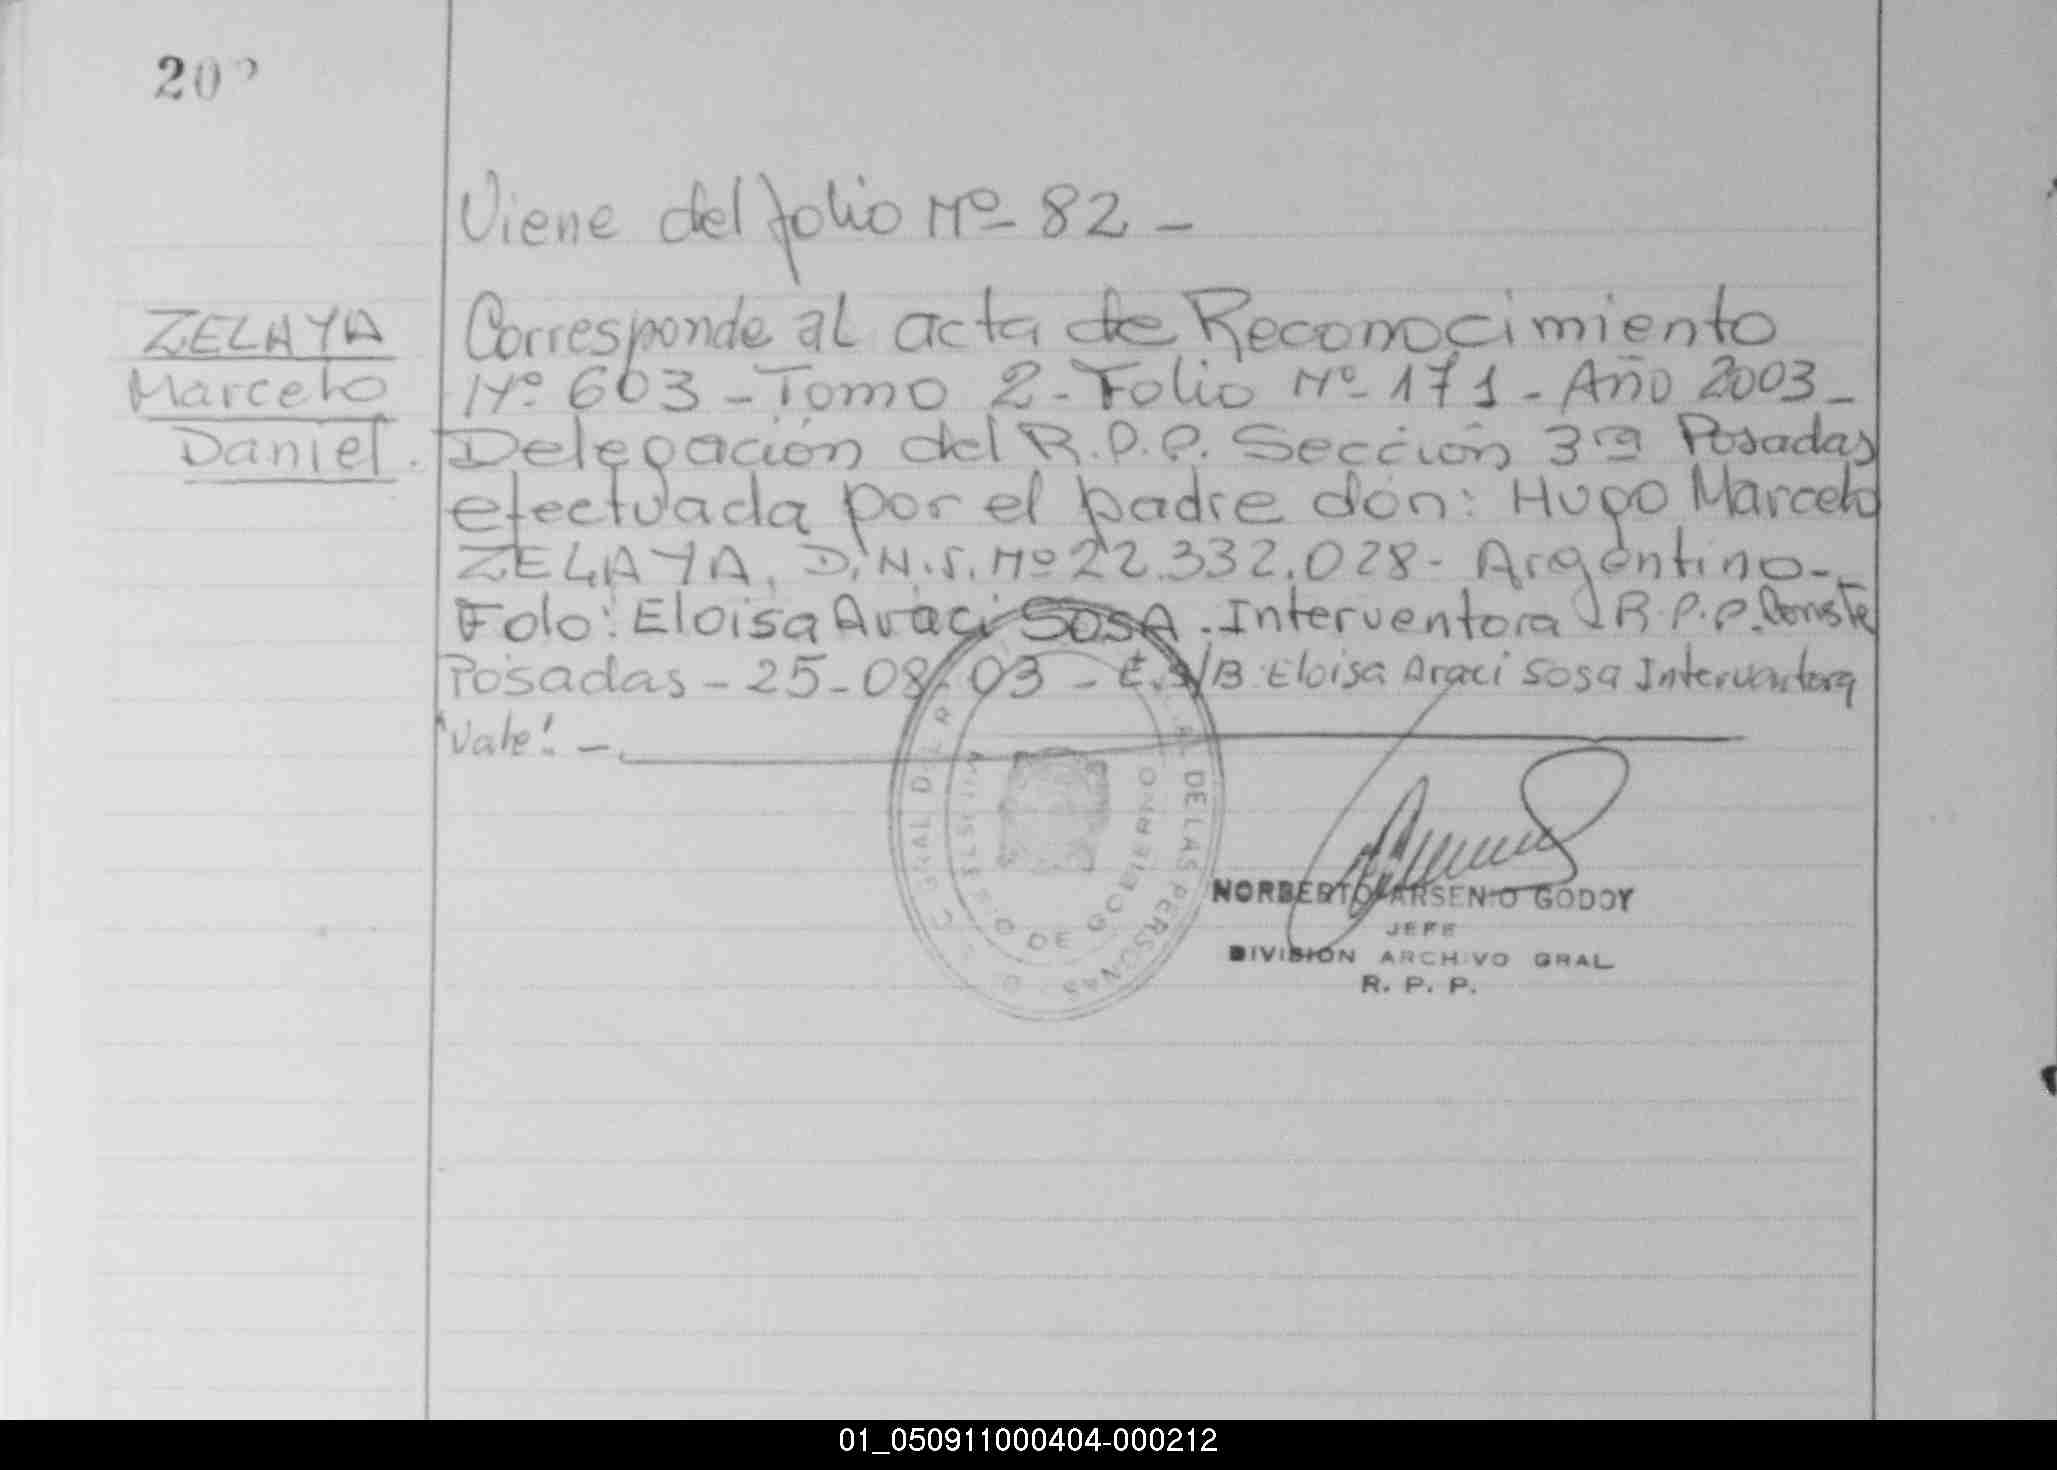 20
Viene del folio Nº 82 -
ZELAYA
Marcelo
Daniel.
Corresponde al acta de Reconocimiento
Nº 603 - Tomo 2 - Folio Nº 171 - Año 2003 -
Delegación del R.P.P. Sección 3ra Posadas
efectuada por el padre don: Hugo Marcelo
ZELAYA, D.N.I. Nº 22.332.028 - Argentino -
Fdo: Eloisa Araci SOSA. Interventora R.P.P. Conste
Posadas - 25-08-03 - E.S/B: Eloisa Araci Sosa Interventora
"Vale". -
DE LAS PERSONAS
DE GOBIERNO
NORBERTO ARSENIO GODOY
JEFE
DIVISION ARCHIVO GRAL
R. P. P.
01_050911000404-000212